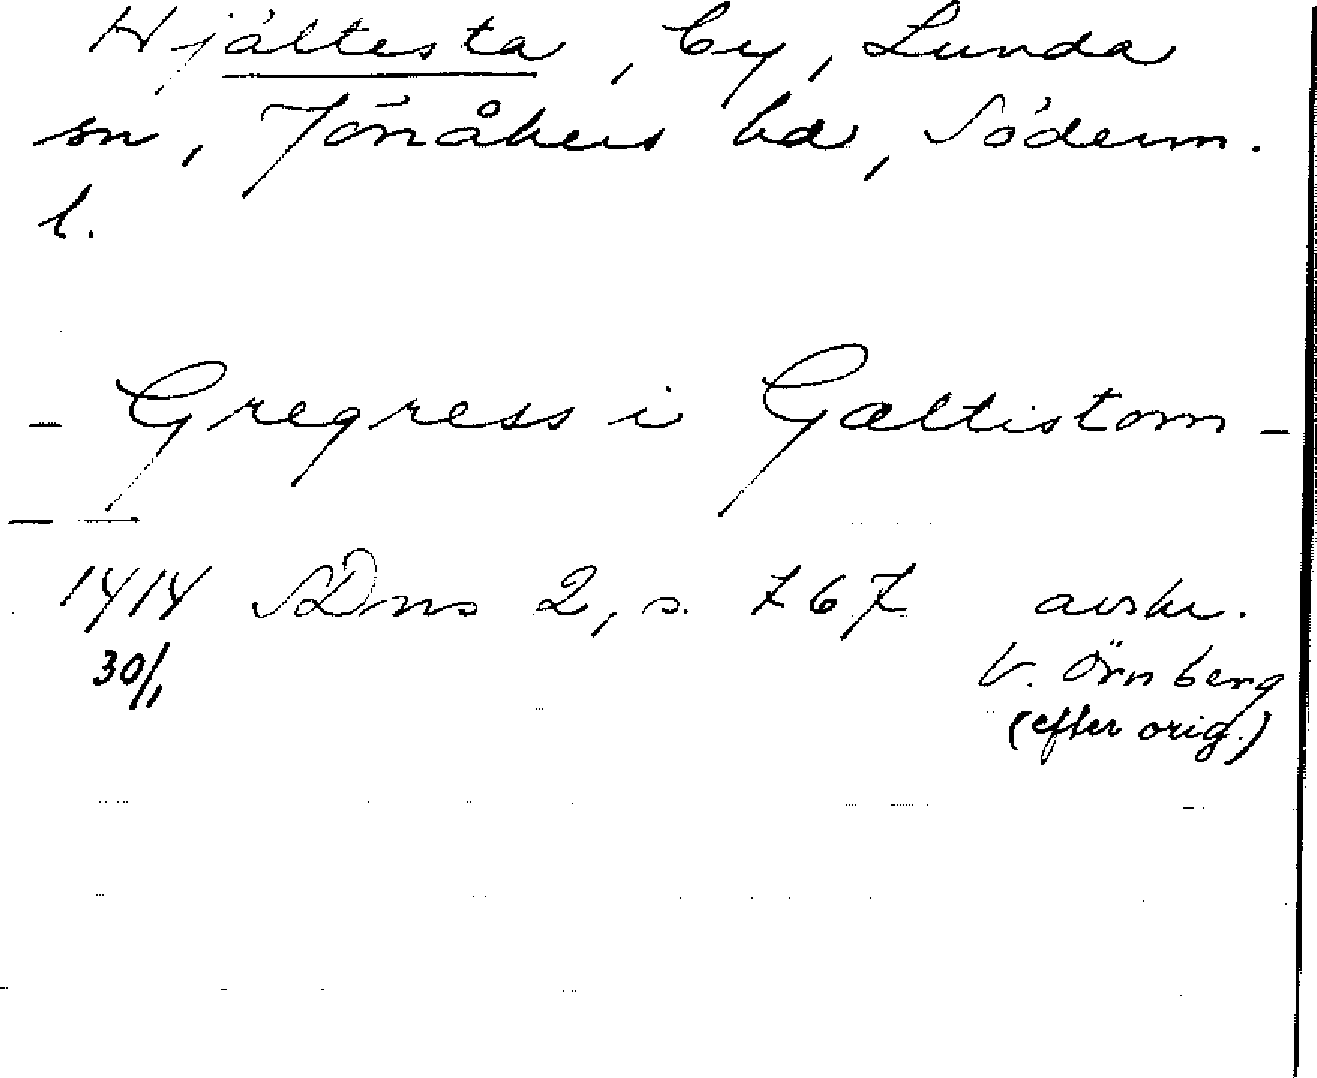 Hjältesta, by, Lunda
sn, Jönåkers hd, Söderm.
l.
- Gregress i Gæltistom -
- -
1414 SDns 2, s. 767 avskr.
30/1 V. Örnberg
(efter orig.)